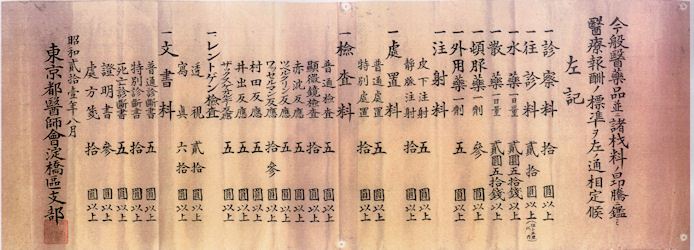 今般醫藥品並ニ諸材料ノ昂騰ニ鑑ミ
醫療報酬ノ標準ヲ左ノ通相定候
左記
一診察料 拾圓以上
一往診料 貳拾圓以上
一水藥 一日量 貳圓五拾錢以上
一散藥 一日量 貳圓五拾錢以上
一頓服藥 一劑 參圓以上
一外用藥 一劑 五圓以上
一注射料
皮下注射 五圓以上
靜脈注射 拾圓以上
一處置料
普通處置 五圓以上
特別處置 拾圓以上
一檢査料
普通檢査 五圓以上
顯微鏡檢査 拾圓以上
赤沈反應 五圓以上
ツベルクリン反應 五圓以上
ワッセルマン反應 拾參圓以上
村田反應 五圓以上
井出反應 五圓以上
五圓以上
一レントゲン檢査
透視 貳拾圓以上
寫眞 六拾圓以上
一文書料
普通診斷書 五圓以上
特別診斷書 拾圓以上
死亡診斷書 五圓以上
證明書 參圓以上
處方箋 拾圓以上
昭和貳拾壹年八月
東京都醫師會淀橋區支部